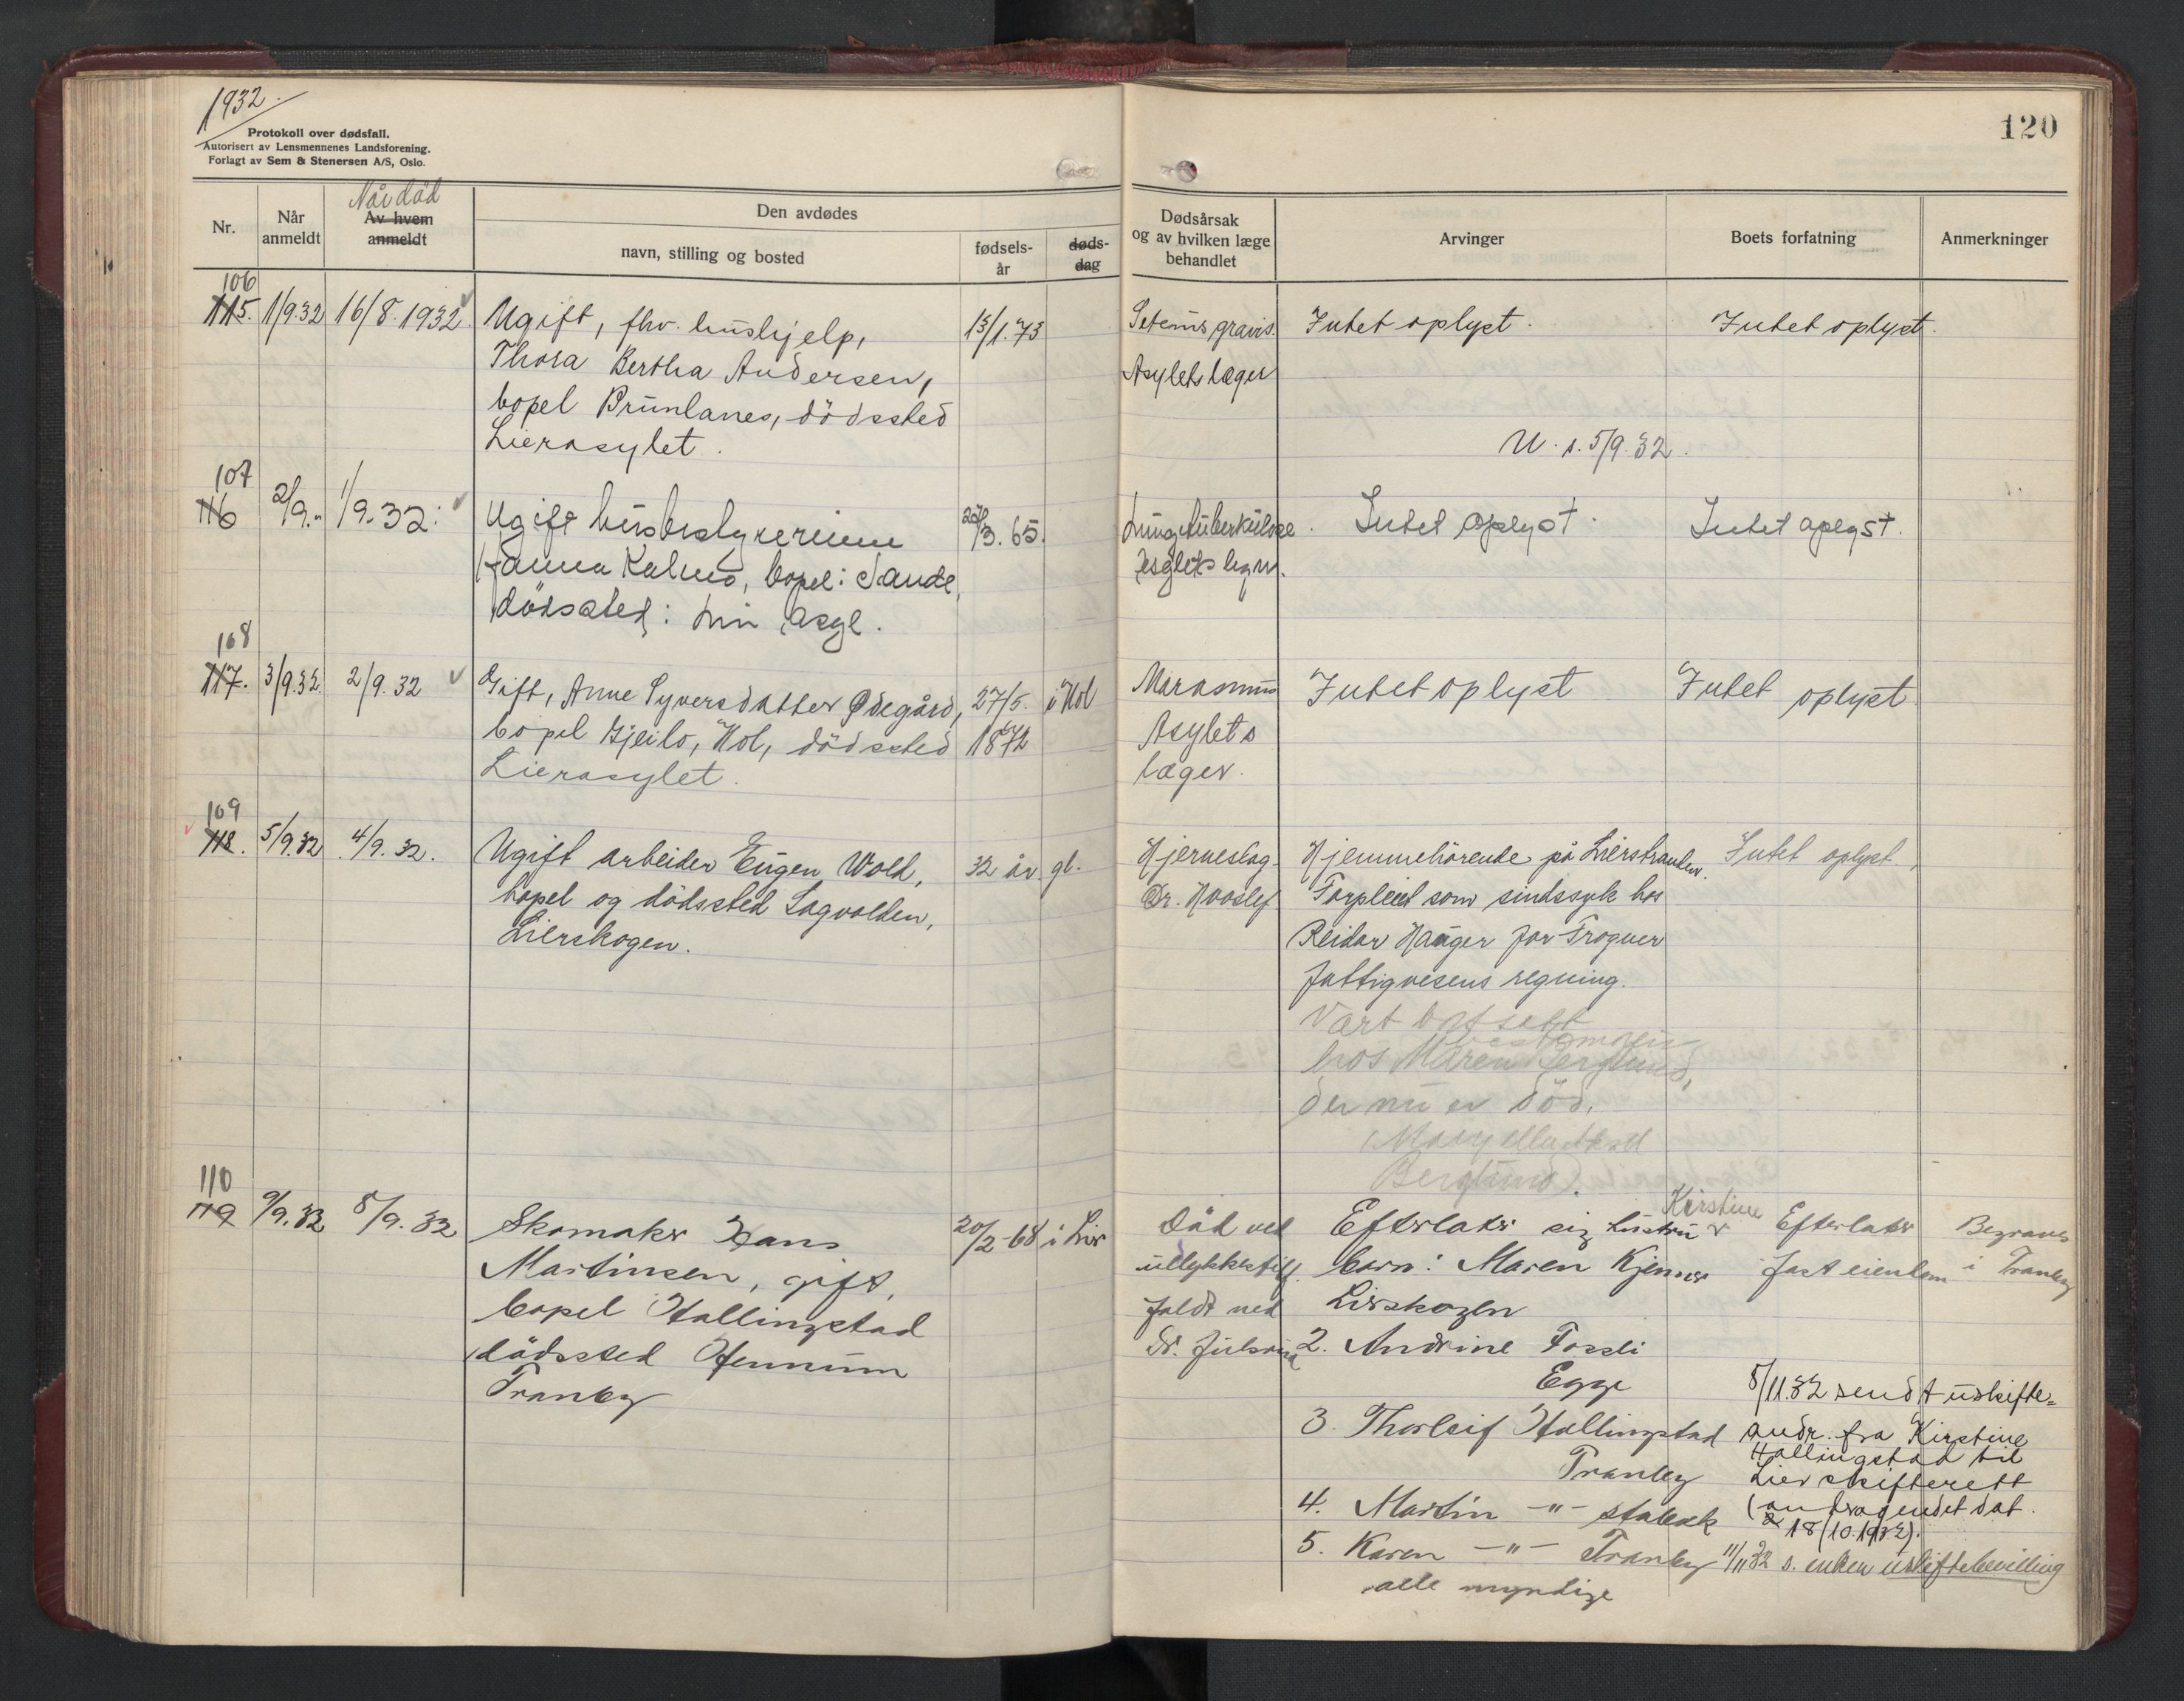 1932.
Protokoll over dødsfall.
Autorisert av Lensmennenes Landsforening.
Forlagt av Sem & Stenersen A/S, Oslo.
120
Nr.
Når anmeldt
Når død
Av hvem anmeldt
Den avdødes
navn, stilling og bosted
fødsels-år
døds-dag
Dødsårsak
og av hvilken læge
behandlet
Arvinger
Boets forfatning
Anmerkninger
106
115. 1/9.32 16/8.1932. Ugift, fhv. hushjelp, 13/1.73 gravis. Intet oplyst. Intet oplyst.
Thora Bertha Andersen, Asylets læger
bopel Brunlanes, dödssted
Lierasylet.
U. s. 5/9.32.
107
116 2/9.- 1/9-32. Ugift husbestyrerinne /3.65. Lungetuberkulose. Intet oplyst. Intet oplyst.
Hanna Kalmo, bopel: Sande, Asylets læger.
dödssted: Lier Asyl.
108
117. 3/9.32. 2/9.32 Gift, Anne Syversdatter Ødegård, 27/5. i Hol Marasmus Intet oplyst Intet oplyst
bopel Gjeilo, Hol, dödssted 1872 Asylets
Lierasylet. læger.
109
118. 5/9.32 4/9.32. Ugift arbeider Eugen Wold, 32 år gl. Hjerneslag. Hjemmehörende på Lierstranden. Intet oplyst.
bopel og dödssted Lagvolden, Dr. Hvoslef Forpleiet som sindssyk hos
Lierskogen. Reidar Hauger for Frogner
fattigvesens regning.
Vært bortsatt
hos Maren Berglund,
der nu er död.
Berglund).
110
119 9/9.32 8/9.32 Skomaker Hans 20/2-68 i Lier Död ved Efterlater sig hustru Kirstine Efterlater Begraves
Martinsen, gift, ullykkestilf. barn: Maren Kjenner fast eiendom i Tranby
bopel Hallingstad faldt ned Lierskogen
dödssted Hennum Dr. 2. Andrine Fossli
Tranby Egge
3. Thorleif Hallingstad
Tranby
4. Martin -"- Stabek
5. Karen -"- Tranby
alle myndige
8/11.32 sendt uskifte=
andr. fra Kirstine
Hallingstad til
Lier skifterett
(andragendet dat.
18/10.1932).
11/11 32 s. enken uskiftebevilling